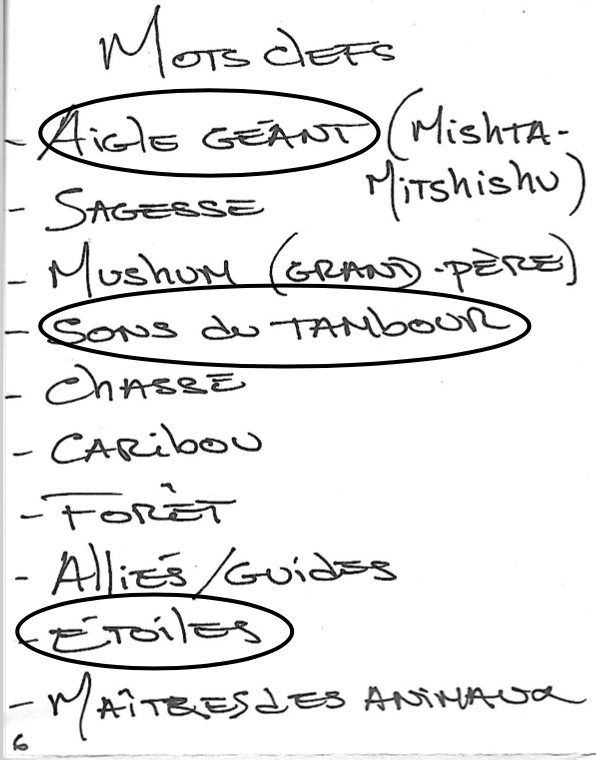 Mots clefs
- Aigle géant (Mishta-
Mitshishu)
- Sagesse
- Mushum (grand-père)
- Sons du tambour
- Chasse
- Caribou
- Forêt
- Alliés/Guides
- Étoiles
- Maîtres des animaux
6